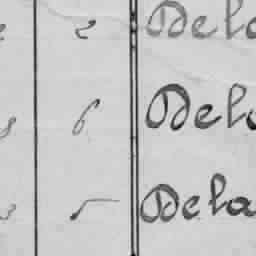 2 Dela
8 6 Dela
3 5 Dela